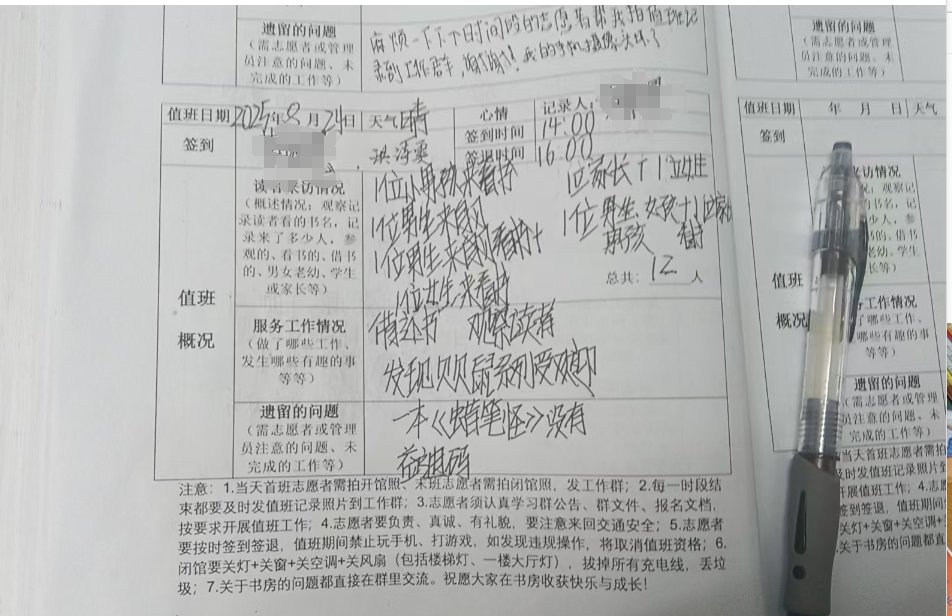 遗留的问题
(需志愿者或管理
员注意的问题、未
完成的工作等)
麻烦一下下个时间段的志愿者帮我拍值班记
录到工作群 谢谢!! 我的手机摄像头坏了
值班日期 2025年8月24日 天气 晴 心情 记录人:
签到 签到时间 14:00
签退时间 16:00
读者来访情况
(概述情况:观察记
录读者看的书名,记
录来了多少人,参
观的、看书的、借书
的、男女老幼、学生
或家长等)
1位小男孩来看书
1位男生来自习
1位男生来自习看书+
1位女生来看书
1位家长+1位
1位男生 女孩+1位
男孩 看书
总共:12人
值班
概况
服务工作情况
(做了哪些工作、
发生哪些有趣的事
等等)
借还书 观察读者
发现贝贝鼠系列受欢迎
遗留的问题
(需志愿者或管理
员注意的问题、未
完成的工作等)
一本《蜡笔怪》没有
注意:1.当天首班志愿者需拍开馆照,末班志愿者需拍闭馆照,发工作群;2.每一时段结
束都要及时发值班记录照片到工作群;3.志愿者须认真学习群公告、群文件、报名文档,
按要求开展值班工作;4.志愿者要负责、真诚、有礼貌,要注意来回交通安全;5.志愿者
要按时签到签退,值班期间禁止玩手机、打游戏,如发现违规操作,将取消值班资格;6.
闭馆要关灯+关窗+关空调+关风扇(包括楼梯灯、一楼大厅灯),拔掉所有充电线,丢垃
圾;7.关于书房的问题都直接在群里交流。祝愿大家在书房收获快乐与成长!
遗留的问题
(需志愿者或管理
员注意的问题、未
完成的工作等)
值班日期 年 月 日 天气
签到
值班
概况
工作情况
遗留的问题
(需志愿者或管理
员注意的问题、未
完成的工作等)